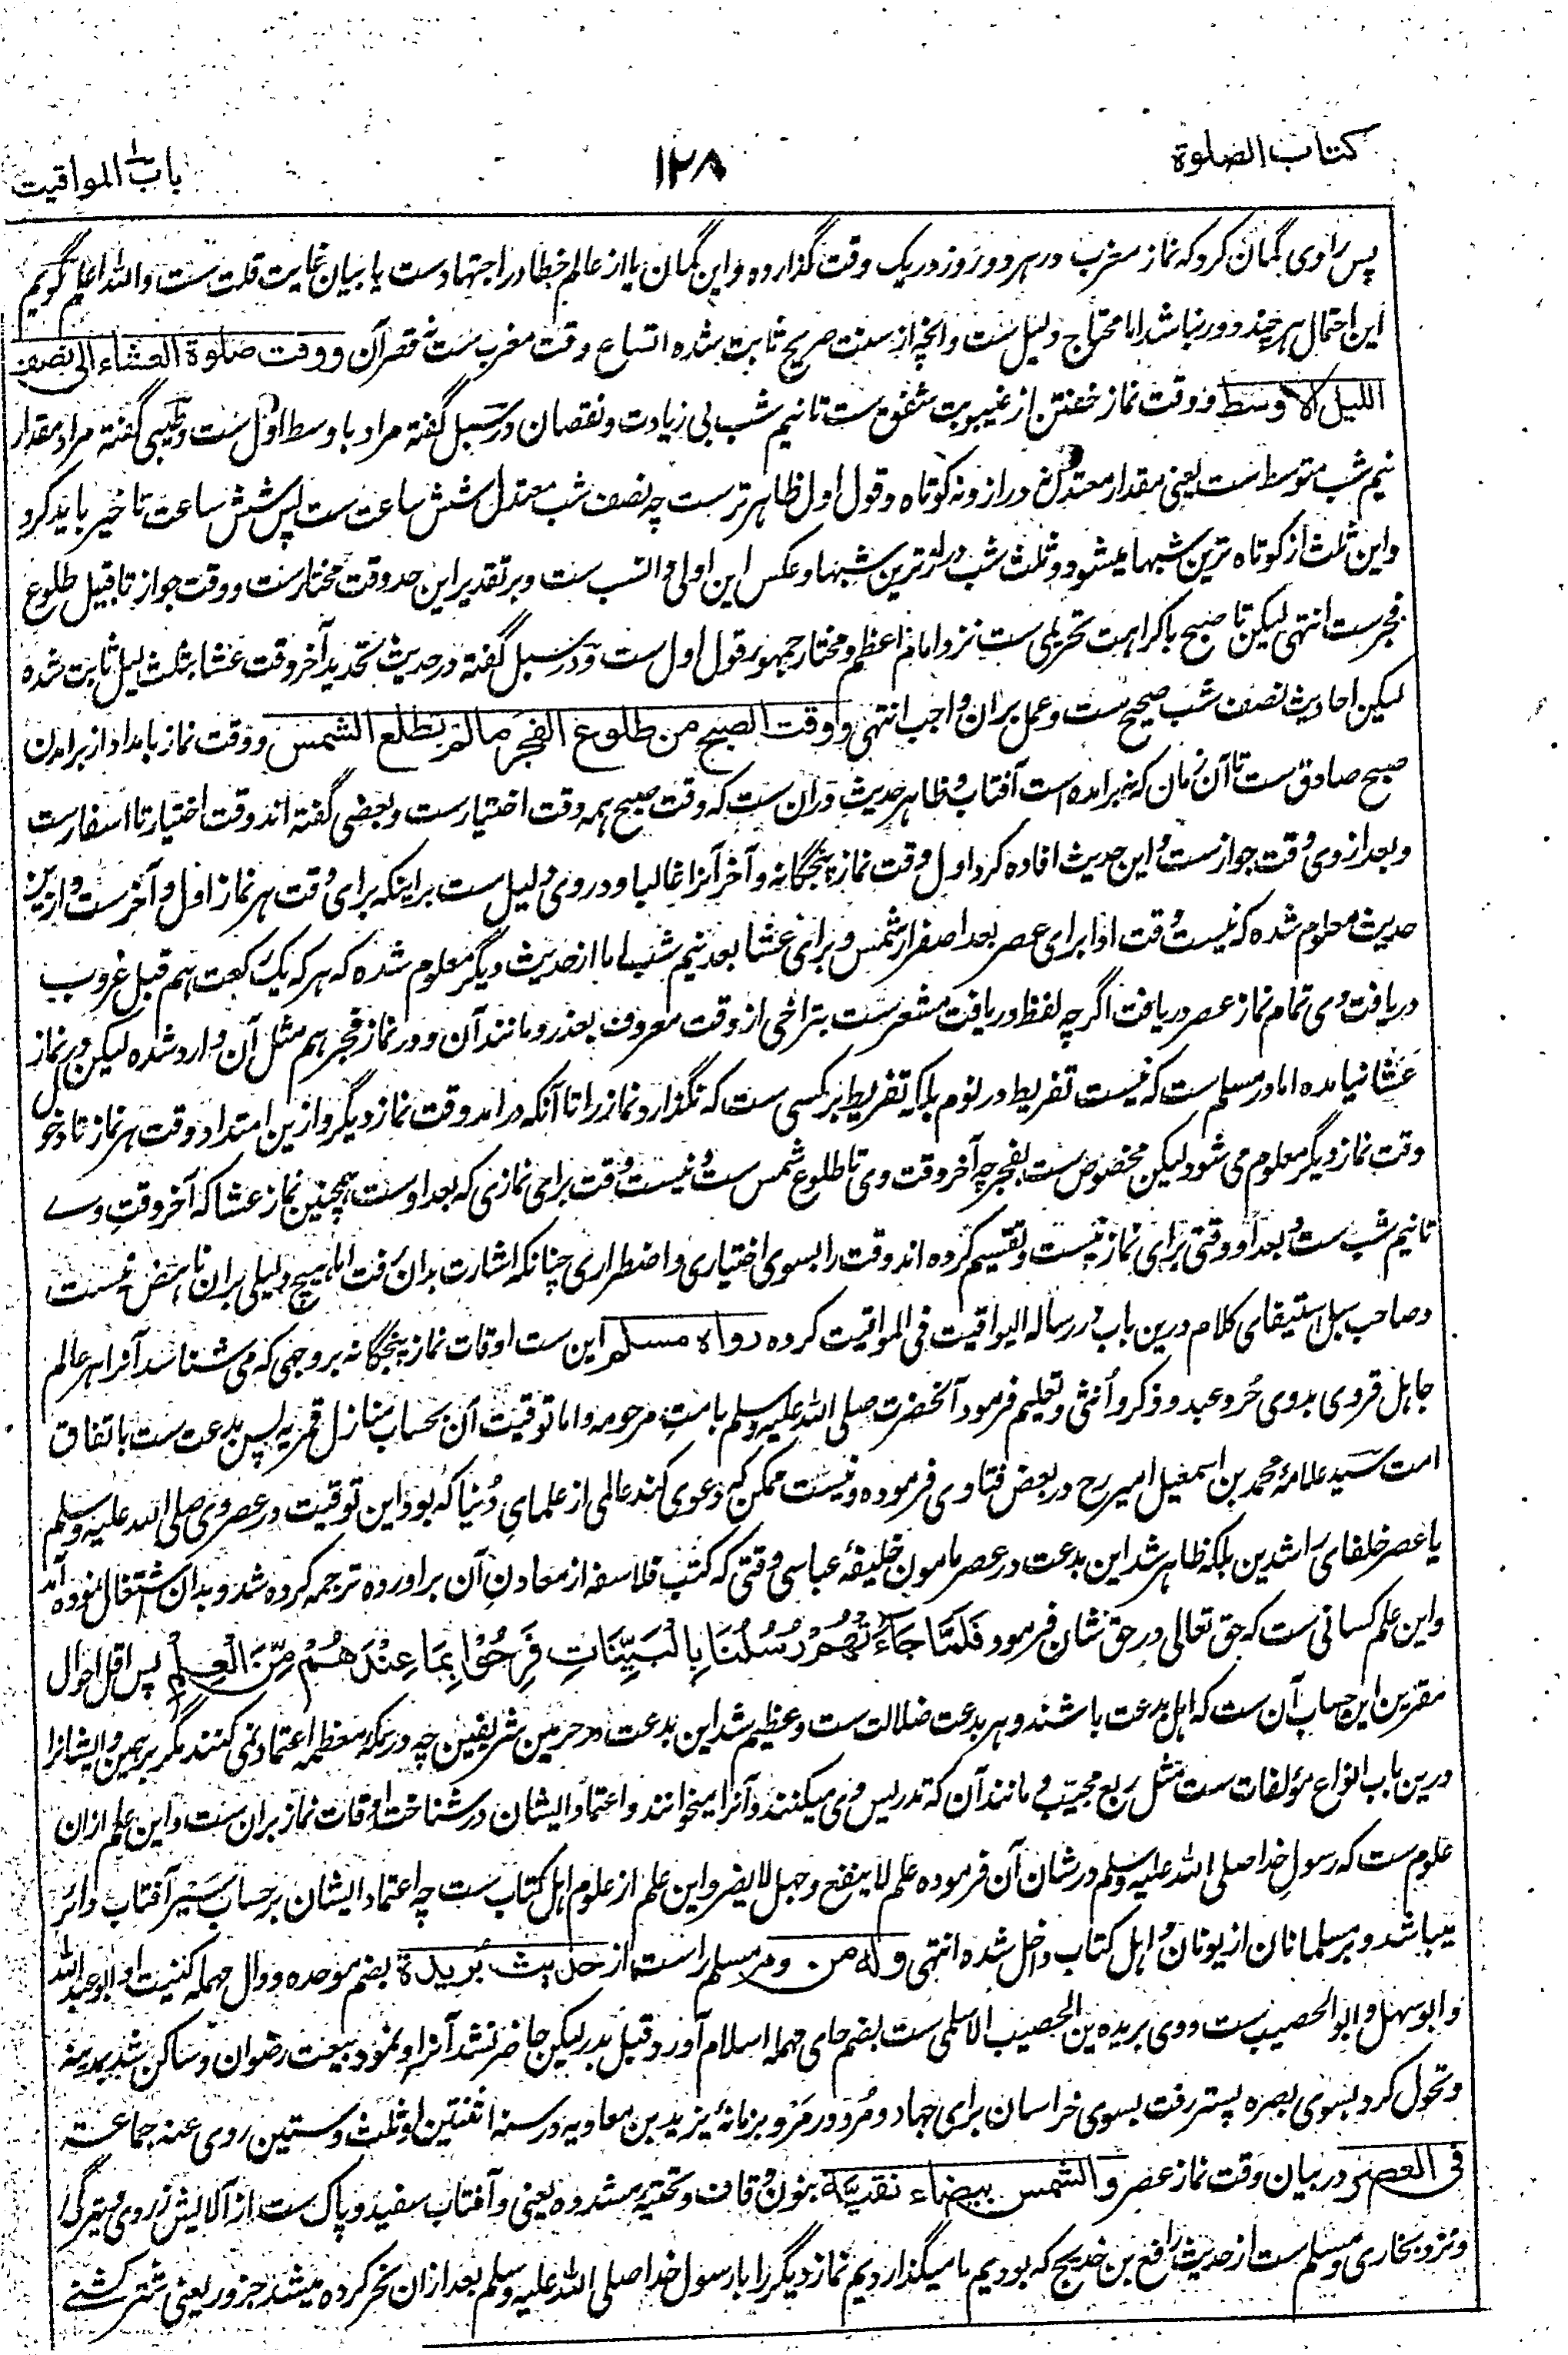 کتاب الصلوة
۱۲۸
باب المواقیت
پس راوی گمان کرد که نماز مغرب در هر دو روز در یک وقت گذارده و این گمان یا از عالم خطا در اجتهادست یا بیان غایت قلت ست والله اعلم گویم
این احتمال هر چند دور نباشد اما محتاج دلیل ست و آنچه از سنت صریح ثابت شده اتساع وقت مغرب ست نه قصر آن ووقت صلوة العشاء الی نصف
اللیل الاوسط و وقت نماز خفتن از غیبوبت شفق ست تا نیم شب بی زیادت و نقصان در سبل گفته مراد باوسط اول ست و طیبی گفته مراد مقدار
نیم شب متوسط ست یعنی مقدار معتدل نه دراز و نه کوتاه و قول اول ظاهرترست چه نصف شب معتدل شش ساعت ست پس شش ساعت تاخیر باید کرد
و این ثلث از کوتاه ترین شبها میشود و ثلث شب درازترین شبها و عکس این اولی و انسب ست و برتقدیر این حد وقت مختارست و وقت جواز تا قبیل طلوع
فجرست انتهی لیکن تا صبح با کراهت تحریمی ست نزد امام اعظم و مختار جمهور قول اول ست و در سبل گفته در حدیث تحدید آخر وقت عشا بثلث لیل ثابت شده
لیکن احادیث نصف شب صحیح ست و عمل بران واجب انتهی ووقت الصبح من طلوع الفجر مالم یطلع الشمس و وقت نماز بامداد از برامدن
صبح صادق ست تا آن زمان که نبرامده است آفتاب و ظاهر حدیث دران ست که وقت صبح همه وقت اختیارست و بعضی گفته اند وقت اختیار تا اسفارست
و بعد از وی وقت جوازست و این حدیث افاده کرد اول وقت نماز پنجگانه و آخر آنرا غالبا و در وی دلیل ست براینکه برای وقت هر نماز اول و آخرست و ازین
حدیث معلوم شده که نیست وقت ادا برای عصر بعد اصفرار شمس و برای عشا بعد نیم شب اما از حدیث دیگر معلوم شده که هر که یک رکعت هم قبل غروب
دریافت وی تمام نماز عصر دریافت اگرچه لفظ دریافت مشعرست بتراخی از وقت معروف بعذر و مانند آن و در نماز فجر هم مثل آن وارد شده لیکن در نماز
عشا نیامده اما در مسلم ست که نیست تفریط در نوم بلکه تفریط بر کسی ست که نگذارد نماز را تا آنکه درامد وقت نماز دیگر و ازین امتداد وقت هر نماز تا دخول
وقت نماز دیگر معلوم می شود لیکن مخصوص ست بفجر چه آخر وقت وی تا طلوع شمس ست و نیست وقت برای نمازی که بعد اوست همچنین نماز عشا که آخر وقت وے
تا نیم شب ست و بعد او وقتی برای نماز نیست و تقسیم کرده اند وقت را بسوی اختیاری و اضطراری چنانکه اشارت بدان رفت اما هیچ دلیلی بران ناهض نیست
و صاحب سبل استیفای کلام درین باب در رساله الیواقیت فی المواقیت کرده رواه مسلم این ست اوقات نماز پنجگانه بروجهی که می شناسد آنرا هر عالم
جاهل قروی بدوی حُر و عبد و ذکر و اُنثی و تعلیم فرمود آنحضرت صلی الله علیه وسلم بامت مرحومه و اما توقیت آن بحساب منازل قمریه پس بدعت ست باتفاق
امت سید علامه محمد بن اسمعیل امیر رح در بعض فتاوی فرموده و نیست ممکن که دعوی کند عالمی از علمای دنیا که بود این توقیت در عصر وی صلی الله علیه وسلم
یا عصر خلفای راشدین بلکه ظاهر شد این بدعت در عصر مامون خلیفهٔ عباسی وقتی که کتب فلاسفه از معادن آن براورده ترجمه کرده شد و بدان اشتغال نموده آمد
و این علم کسانی ست که حق تعالی در حق شان فرمود فَلَمَّا جَاءَتْهُمْ رُسُلُنَا بِالْبَيِّنَاتِ فَرِحُوْا بِمَا عِنْدَهُمْ مِّنَ الْعِلْمِ پس اقل احوال
مقرین این حساب آن ست که اهل بدعت باشند و هر بدعت ضلالت ست و عظیم شد این بدعت در حرمین شریفین چه در مکه معظمه اعتماد نمی کنند مگر برهمین و ایشانرا
درین باب انواع مؤلفات ست مثل ربع مجیب و مانند آن که تدریس وی میکنند و آنرا میخوانند و اعتماد ایشان در شناخت اوقات نماز بران ست و این علم ازان
علوم ست که رسول خدا صلی الله علیه وسلم در شان آن فرموده علم لا ینفع وجهل لا یضر و این علم از علوم اهل کتاب ست چه اعتماد ایشان بر حساب سیر آفتاب دائر
میباشد و بر مسلمانان از یونان و اهل کتاب داخل شده انتهی وله من و مر مسلم راست از حدیث بُریدة بضم موحده و دال مهمله کنیت او ابو عبدالله
و ابو سهل و ابوالحصیب ست و وی بریده بن الحصیب الاسلمی ست بضم حای مهمله اسلام آورد قبل بدر لیکن حاضر نشد آنرا و نمود بیعت رضوان و ساکن شد بمدینه
و تحول کرد بسوی بصره پستر رفت بسوی خراسان برای جهاد و مُرد در مَرو بزمانهٔ یزید بن معاویه در سنه اثنتین او ثلث و ستین روی عنه جماعة
فی العصر در بیان وقت نماز عصر والشمس بیضاء نقیّة بنون و قاف و تحتیه مشدده یعنی و آفتاب سفید و پاک ست از آلایش زردی و تیرگی
و نزد بخاری و مسلم ست از حدیث رافع بن خدیج که بودیم ما میگذاردیم نماز دیگر را با رسول خدا صلی الله علیه وسلم بعد ازان نحر کرده میشد جزور یعنی شتر کشتنے